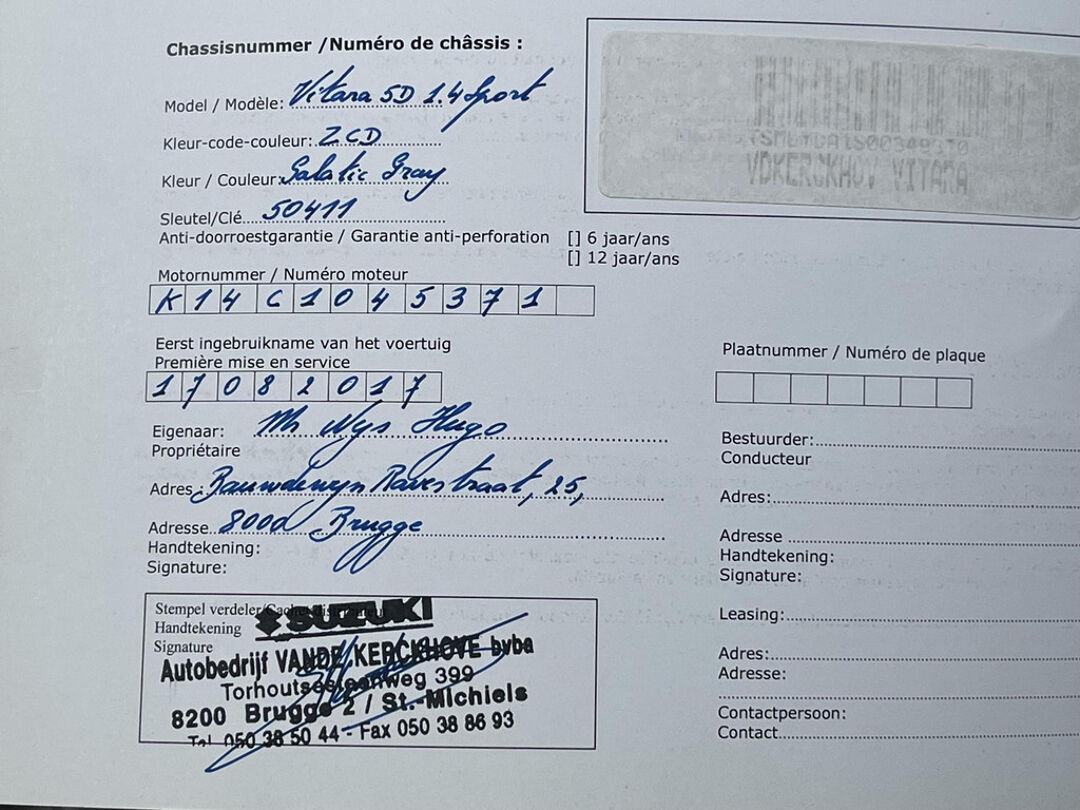 Chassisnummer /Numéro de châssis :
Model / Modèle: Vitara 5D 1.4 Sport
Kleur-code-couleur: ZCD
Kleur / Couleur: Galatic Gray
Sleutel/Clé 50411
Anti-doorroestgarantie / Garantie anti-perforation [] 6 jaar/ans
[] 12 jaar/ans
Motornummer / Numéro moteur
K14C1045371
Eerst ingebruikname van het voertuig
Première mise en service
17082017
Eigenaar: Mr Nys Hugo
Propriétaire
Adres: Bauwdewyn Ravestraat, 25,
Adresse 8000 Brugge
Handtekening:
Signature:
Stempel verdeler/
Handtekening
Signature
SUZUKI
Autobedrijf VANDE KERCKHOVE bvba
Torhoutsesteenweg 399
8200 Brugge 2 / St.-Michiels
Tel 050 38 50 44 - Fax 050 38 86 93
VDKERCKHOV VITARA
Plaatnummer / Numéro de plaque
Bestuurder:
Conducteur
Adres:
Adresse
Handtekening:
Signature:
Leasing:
Adres:
Adresse:
Contactpersoon:
Contact